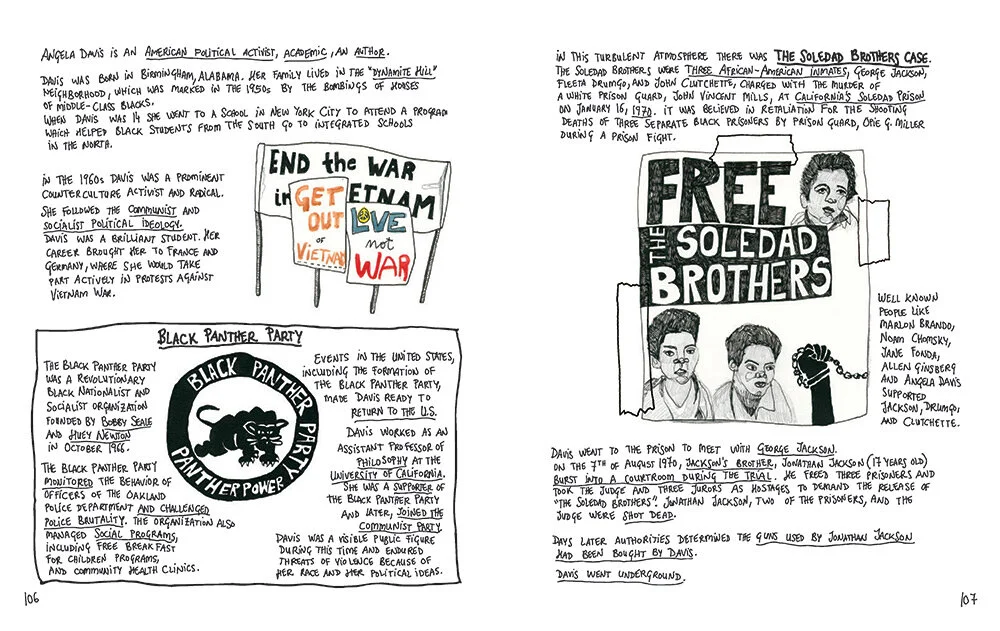 ANGELA DAVIS IS AN AMERICAN POLITICAL ACTIVIST, ACADEMIC, AN AUTHOR.
DAVIS WAS BORN IN BIRMINGHAM, ALABAMA. HER FAMILY LIVED IN THE "DYNAMITE HILL"
NEIGHBORHOOD, WHICH WAS MARKED IN THE 1950s BY THE BOMBINGS OF HOUSES
OF MIDDLE-CLASS BLACKS.
WHEN DAVIS WAS 14 SHE WENT TO A SCHOOL IN NEW YORK CITY TO ATTEND A PROGRAM
WHICH HELPED BLACK STUDENTS FROM THE SOUTH GO TO INTEGRATED SCHOOLS
IN THE NORTH.
IN THE 1960s DAVIS WAS A PROMINENT
COUNTERCULTURE ACTIVIST AND RADICAL.
SHE FOLLOWED THE COMMUNIST AND
SOCIALIST POLITICAL IDEOLOGY.
DAVIS WAS A BRILLIANT STUDENT. HER
CAREER BROUGHT HER TO FRANCE AND
GERMANY, WHERE SHE WOULD TAKE
PART ACTIVELY IN PROTESTS AGAINST
VIETNAM WAR.
END the WAR
in ETNAM
GET
OUT
OF
VIETNAM
LOVE
not
WAR
BLACK PANTHER PARTY
THE BLACK PANTHER PARTY
WAS A REVOLUTIONARY
BLACK NATIONALIST AND
SOCIALIST ORGANIZATION
FOUNDED BY BOBBY SEALE
AND HUEY NEWTON
IN OCTOBER 1966.
THE BLACK PANTHER PARTY
MONITORED THE BEHAVIOR OF
OFFICERS OF THE OAKLAND
POLICE DEPARTMENT AND CHALLENGED
POLICE BRUTALITY. THE ORGANIZATION ALSO
MANAGED SOCIAL PROGRAMS,
INCLUDING FREE BREAKFAST
FOR CHILDREN PROGRAMS,
AND COMMUNITY HEALTH CLINICS.
BLACK PANTHER PARTY
PANTHER POWER
EVENTS IN THE UNITED STATES,
INCLUDING THE FORMATION OF
THE BLACK PANTHER PARTY,
MADE DAVIS READY TO
RETURN TO THE U.S.
DAVIS WORKED AS AN
ASSISTANT PROFESSOR OF
PHILOSOPHY AT THE
UNIVERSITY OF CALIFORNIA.
SHE WAS A SUPPORTER OF
THE BLACK PANTHER PARTY
AND LATER, JOINED THE
COMMUNIST PARTY.
DAVIS WAS A VISIBLE PUBLIC FIGURE
DURING THIS TIME AND ENDURED
THREATS OF VIOLENCE BECAUSE OF
HER RACE AND HER POLITICAL IDEAS.
106
IN THIS TURBULENT ATMOSPHERE THERE WAS THE SOLEDAD BROTHERS CASE.
THE SOLEDAD BROTHERS WERE THREE AFRICAN-AMERICAN INMATES, GEORGE JACKSON,
FLEETA DRUMGO, AND JOHN CLUTCHETTE, CHARGED WITH THE MURDER OF
A WHITE PRISON GUARD, JOHN VINCENT MILLS, AT CALIFORNIA'S SOLEDAD PRISON
ON JANUARY 16, 1970. IT WAS BELIEVED IN RETALIATION FOR THE SHOOTING
DEATHS OF THREE SEPARATE BLACK PRISONERS BY PRISON GUARD, OPIE G. MILLER
DURING A PRISON FIGHT.
FREE
THE SOLEDAD
BROTHERS
WELL KNOWN
PEOPLE LIKE
MARLON BRANDO,
NOAM CHOMSKY,
JANE FONDA,
ALLEN GINSBERG
AND ANGELA DAVIS
SUPPORTED
JACKSON, DRUMGO,
AND CLUTCHETTE.
DAVIS WENT TO THE PRISON TO MEET WITH GEORGE JACKSON.
ON THE 7TH OF AUGUST 1970, JACKSON'S BROTHER, JONATHAN JACKSON (17 YEARS OLD)
BURST INTO A COURTROOM DURING THE TRIAL. HE FREED THREE PRISONERS AND
TOOK THE JUDGE AND THREE JURORS AS HOSTAGES TO DEMAND THE RELEASE OF
"THE SOLEDAD BROTHERS". JONATHAN JACKSON, TWO OF THE PRISONERS, AND THE
JUDGE WERE SHOT DEAD.
DAYS LATER AUTHORITIES DETERMINED THE GUNS USED BY JONATHAN JACKSON
HAD BEEN BOUGHT BY DAVIS.
DAVIS WENT UNDERGROUND.
107